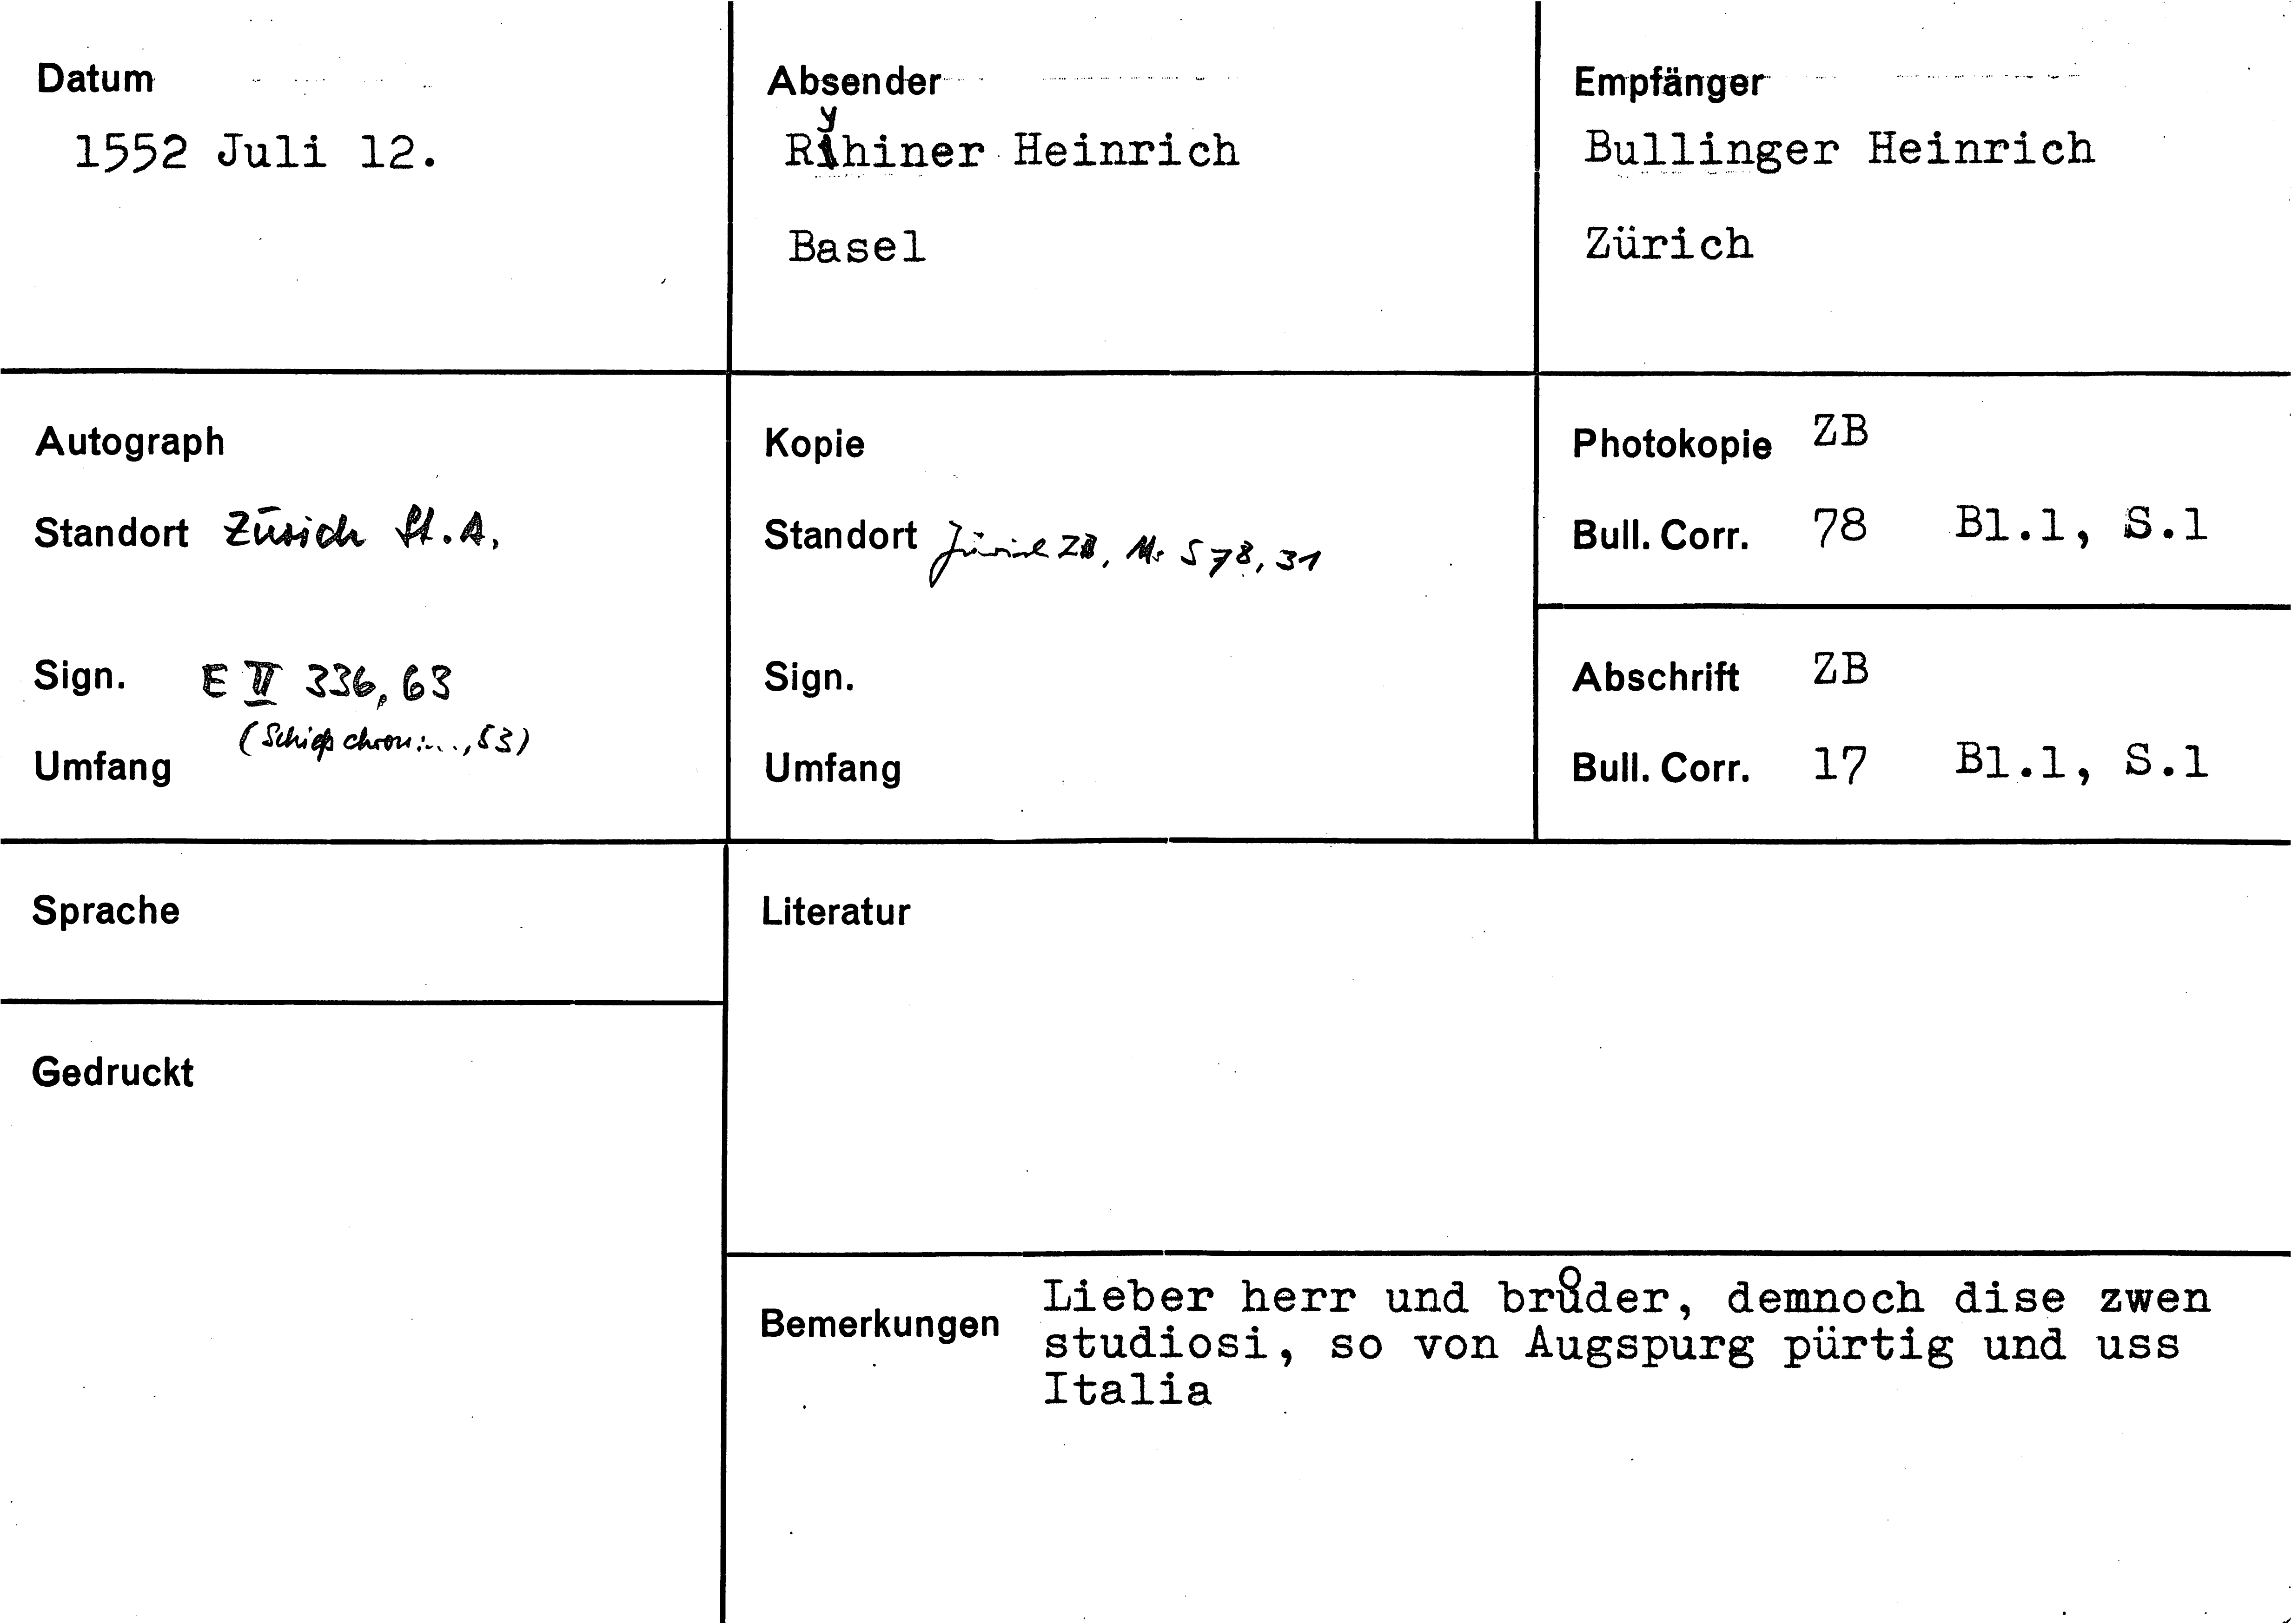 Datum
1552 Juli 12.
Absender
Ryhiner Heinrich
Basel
Empfänger
Bullinger Heinrich
Zürich
Autograph
Standort Zürich St.A.
Sign. E II 336, 63
(Schieß chron:..., 53)
Umfang
Kopie
Standort Zürich ZB, Ms S 78, 31
Sign.
Umfang
Photokopie ZB
Bull. Corr. 78 Bl.1, S.1
Abschrift ZB
Bull. Corr. 17 Bl.1, S.1
Sprache
Literatur
Gedruckt
Bemerkungen
Lieber herr und brůder, demnoch dise zwen
studiosi, so von Augspurg pürtig und uss
Italia